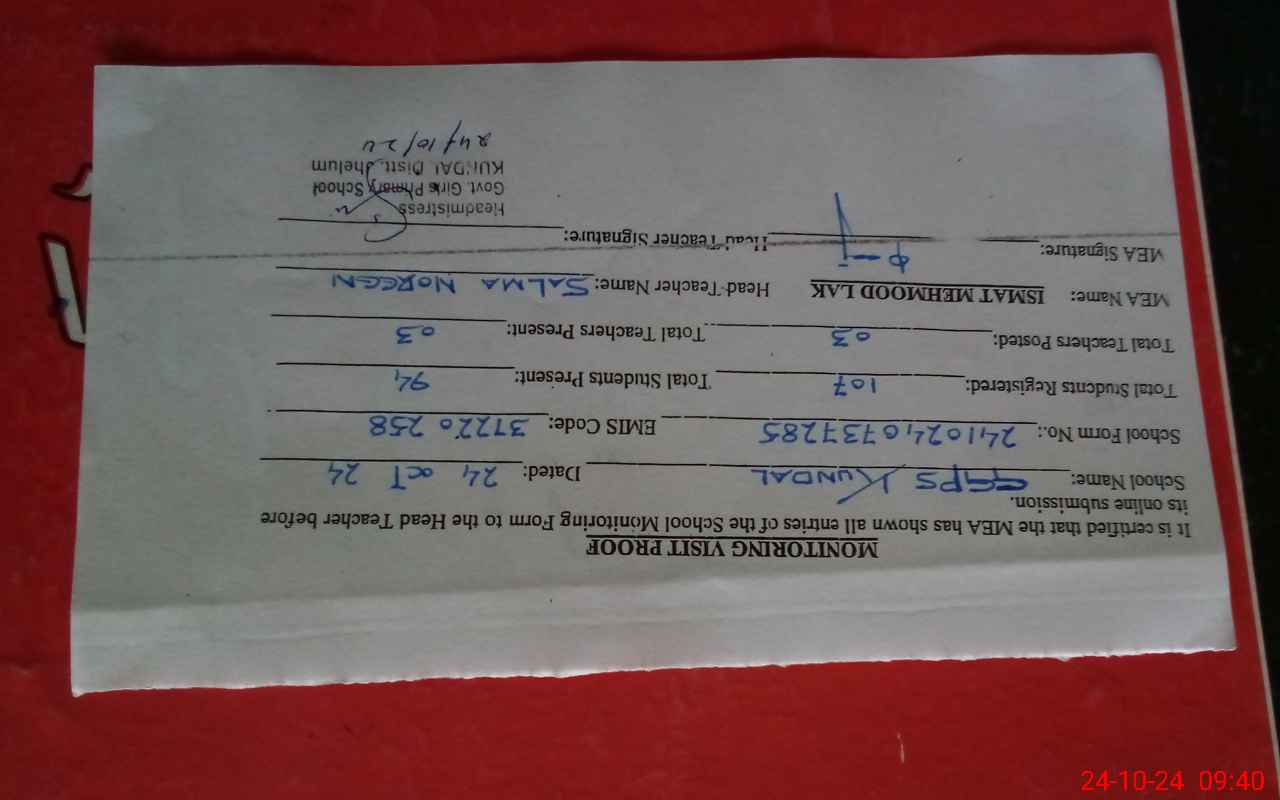 MONITORING VISIT PROOF
It is certified that the MEA has shown all entries of the School Monitoring Form to the Head Teacher before
its online submission.
School Name: GGPS KUNDAL Dated: 24 OCT 24
School Form No.: 2410240737285 EMIS Code: 37220258
Total Students Registered: 107 Total Students Present: 94
Total Teachers Posted: 03 Total Teachers Present: 03
MEA Name: ISMAT MEHMOOD LAK Head Teacher Name: SALMA NOREEN
MEA Signature: Head Teacher Signature:
Headmistress
Govt. Girls Primary School
KUNDAL Distt. Jhelum
24/10/24
24-10-24 09:40